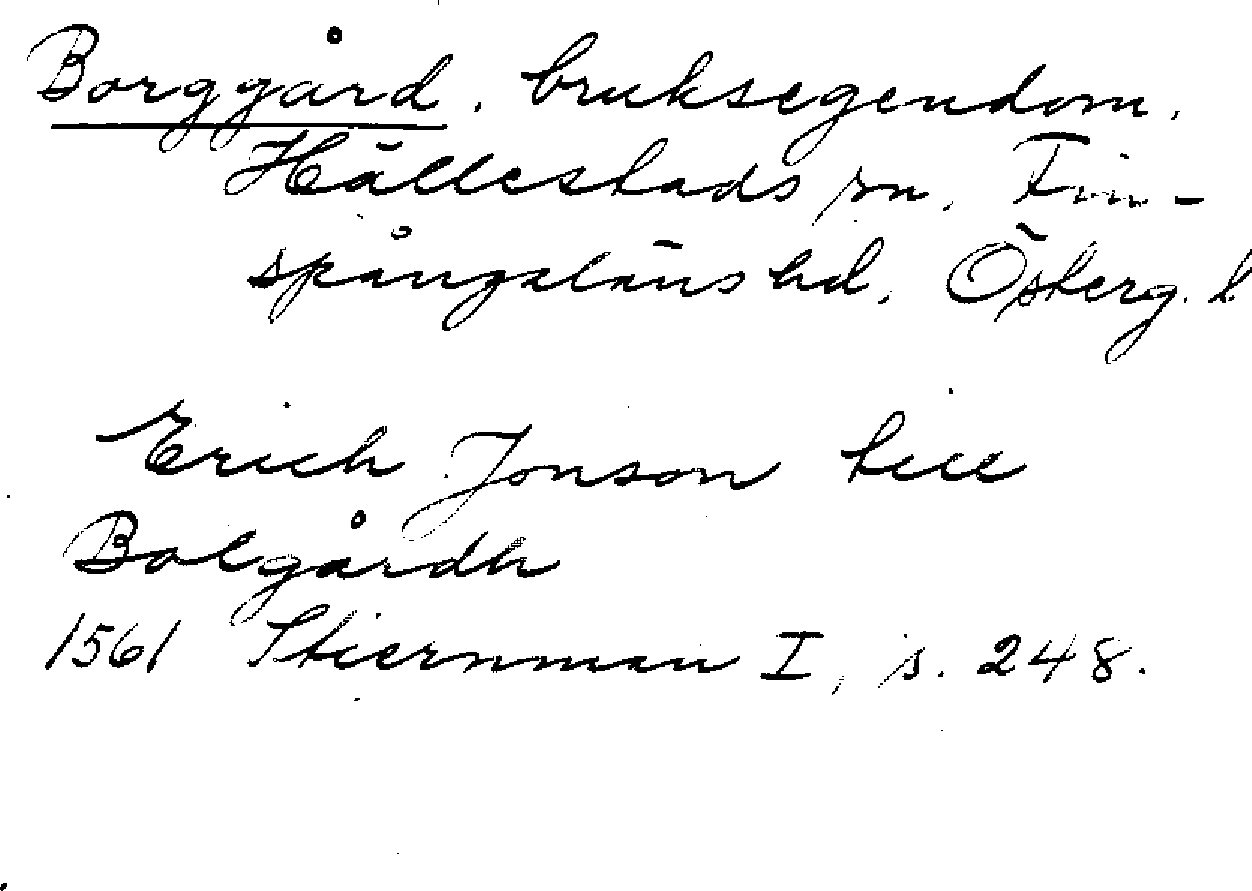 Borggård, bruksegendom,
Hällestads sn, Fin-
spångaläns hd, Österg. l
Erich Jonson till
Bolgårdh
1561 Stiernman I, s. 248.